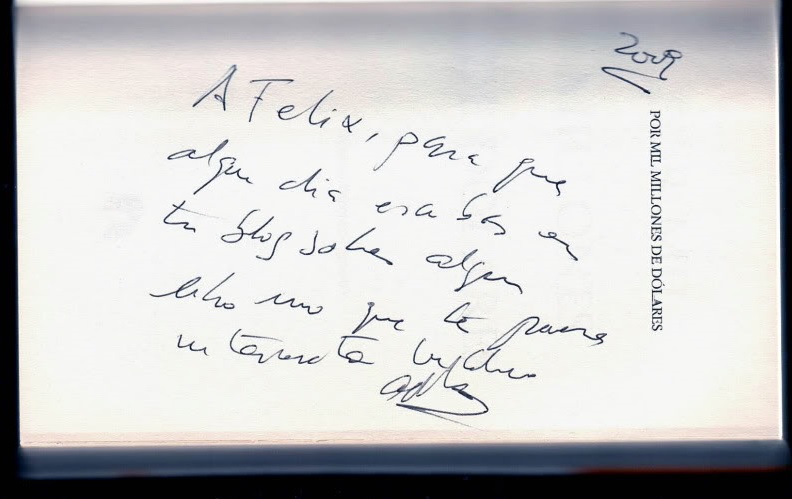 2009
POR MIL MILLONES DE DÓLARES
A Felix, para que
algun dia escribas en
tu blog sobre algun
libro mio que te parezca
interesante